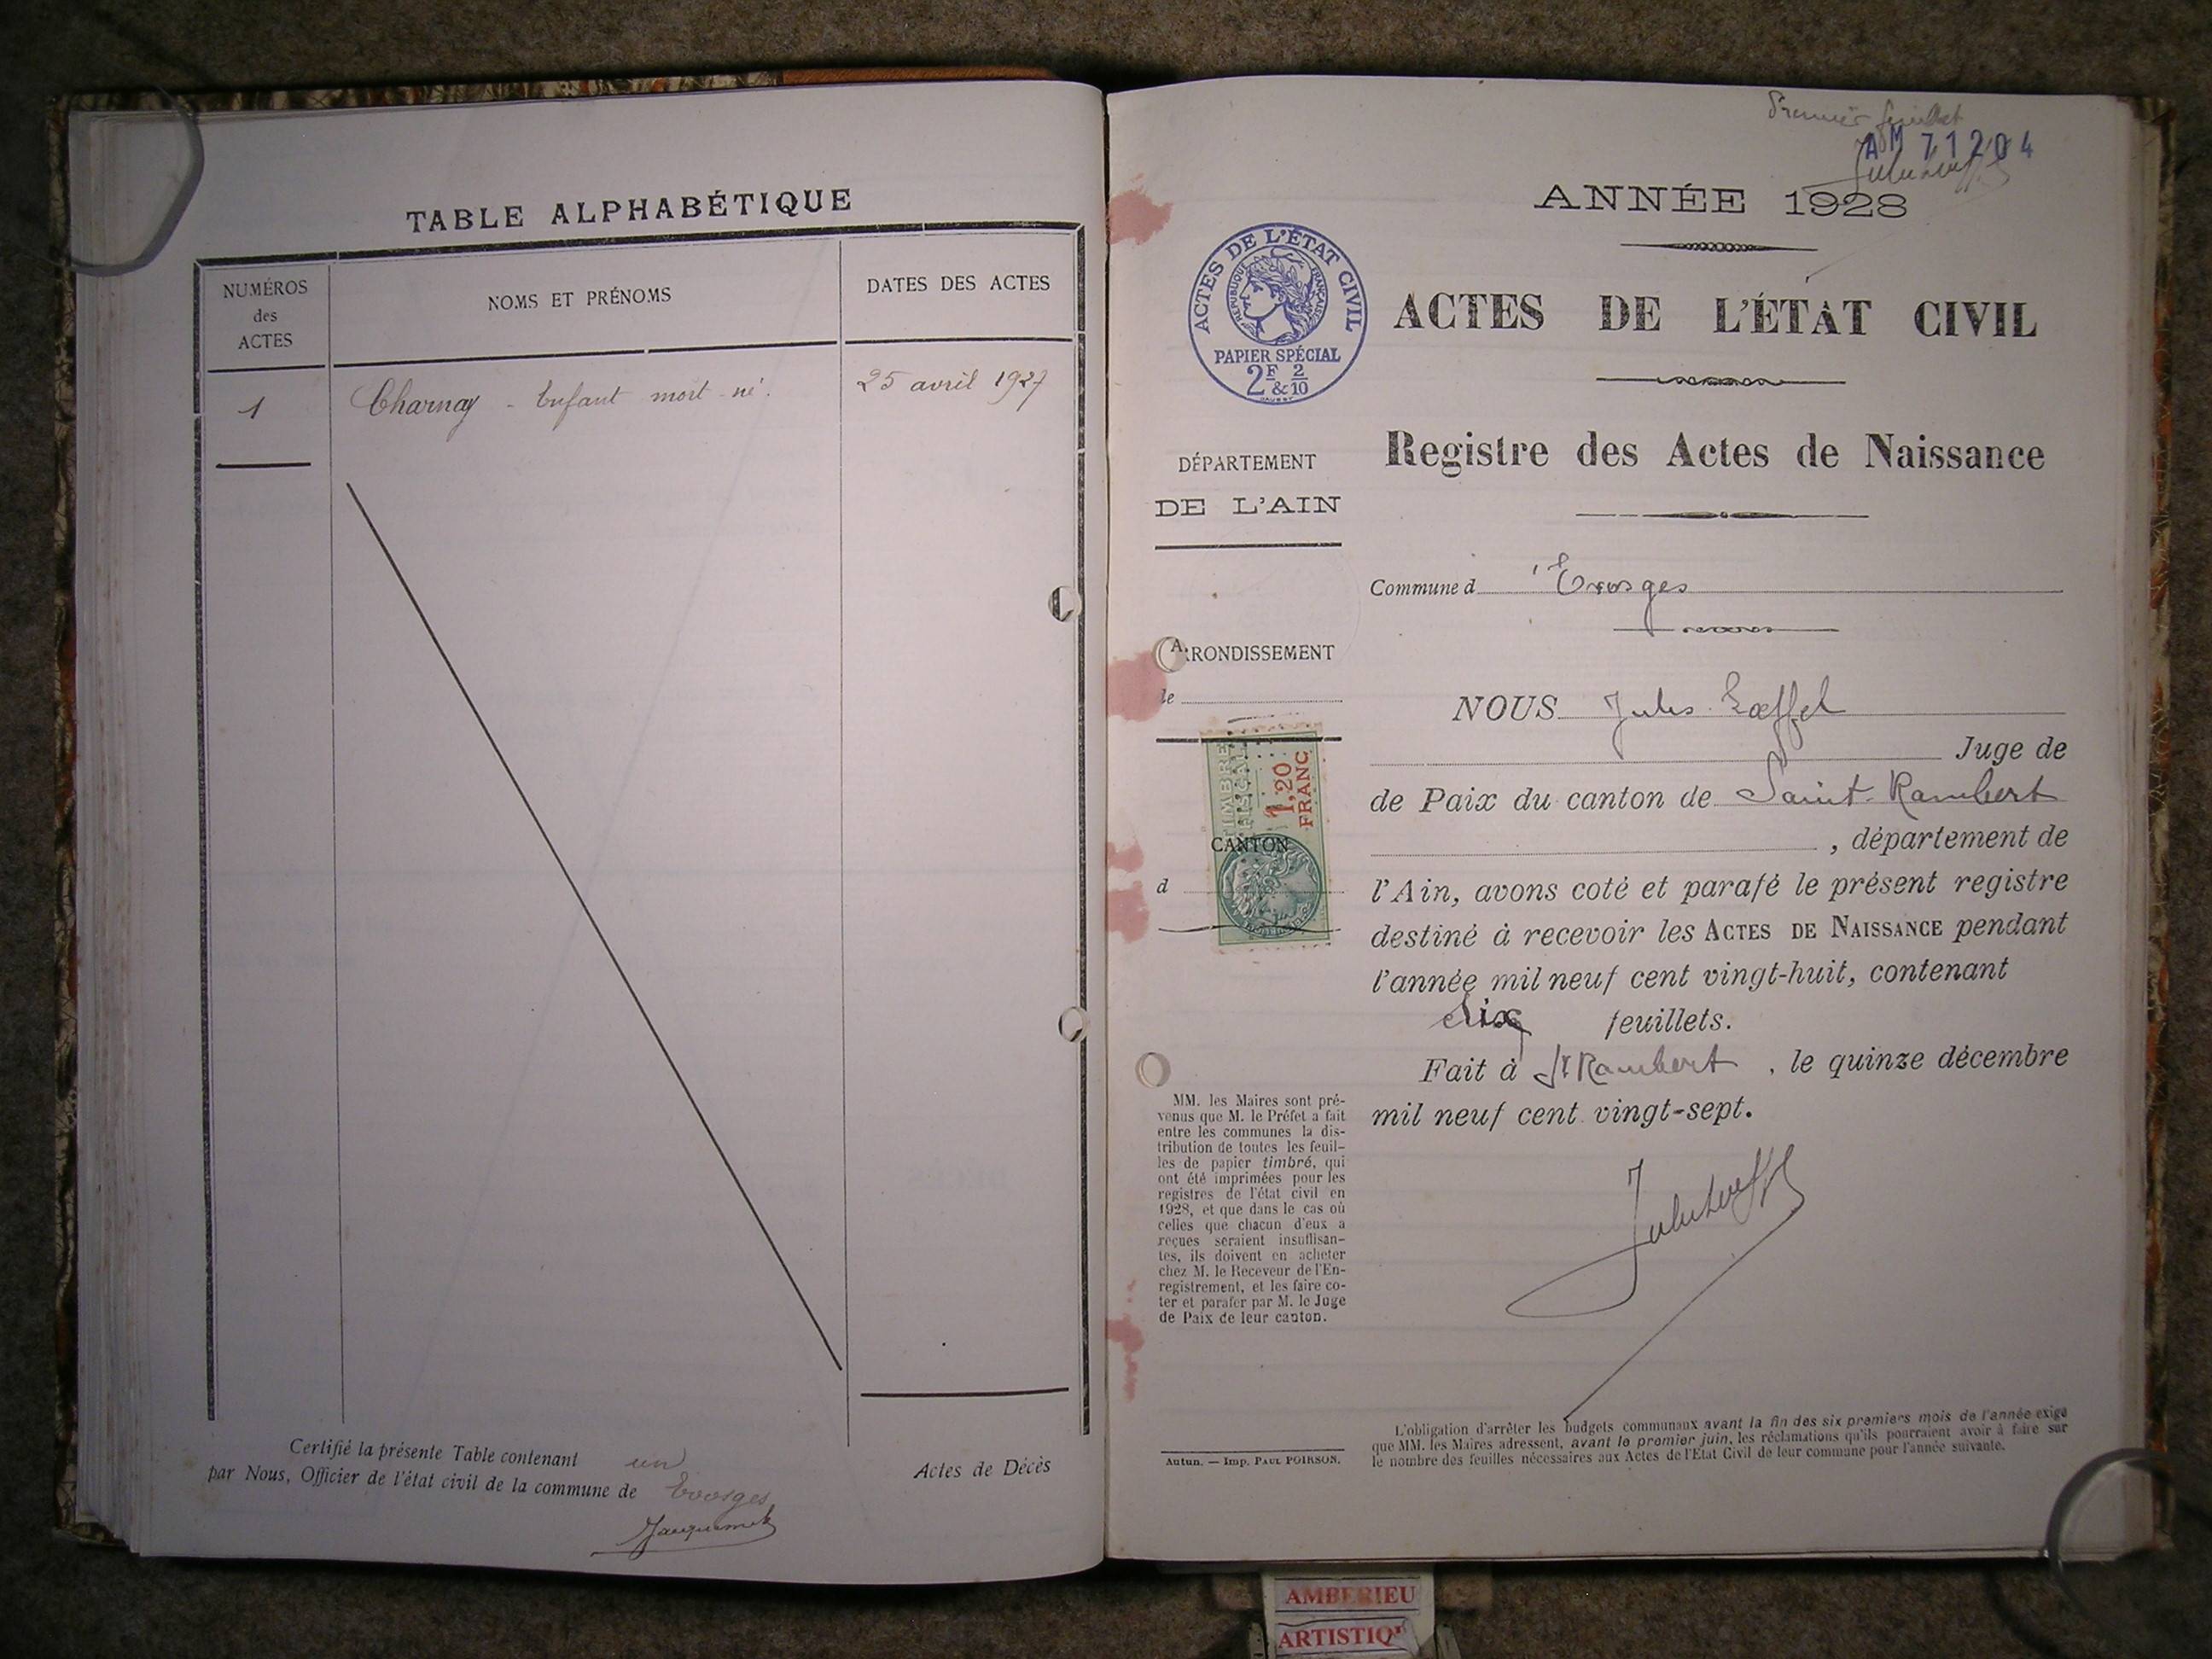 TABLE ALPHABÉTIQUE
NUMÉROS
des
ACTES
NOMS ET PRÉNOMS
DATES DES ACTES
1 Charnay - Enfant mort-né. 25 avril 1927
Certifié la présente Table contenant un
par Nous, Officier de l'état civil de la commune de Evosges
Actes de Décès
Premier feuillet
AM 71204
ANNÉE 1928
ACTES DE L'ÉTAT CIVIL
RÉPUBLIQUE FRANÇAISE
PAPIER SPÉCIAL
2F 2/10
&
ACTES DE L'ÉTAT CIVIL
Registre des Actes de Naissance
DÉPARTEMENT
DE L'AIN
Commune d'Evosges
ARRONDISSEMENT
le
TIMBRE
FISCAL
1,20
FRANC
CANTON
d
NOUS Jules Loeffel
Juge de
de Paix du canton de Saint-Rambert
, département de
l'Ain, avons coté et parafé le présent registre
destiné à recevoir les ACTES DE NAISSANCE pendant
l'année mil neuf cent vingt-huit, contenant
six feuillets.
Fait à St Rambert, le quinze décembre
mil neuf cent vingt-sept.
MM. les Maires sont pré-
venus que M. le Préfet a fait
entre les communes la dis-
tribution de toutes les feuil-
les de papier timbré, qui
ont été imprimées pour les
registres de l'état civil en
1928, et que dans le cas où
celles que chacun d'eux a
reçues seraient insuffisan-
tes, ils doivent en acheter
chez M. le Receveur de l'En-
registrement, et les faire co-
ter et parafer par M. le Juge
de Paix de leur canton.
Autun. — Imp. PAUL POIRSON.
L'obligation d'arrêter les budgets communaux avant la fin des six premiers mois de l'année exige
que MM. les Maires adressent, avant le premier juin, les réclamations qu'ils pourraient avoir à faire sur
le nombre des feuilles nécessaires aux Actes de l'Etat Civil de leur commune pour l'année suivante.
AMBERIEU
ARTISTIQ